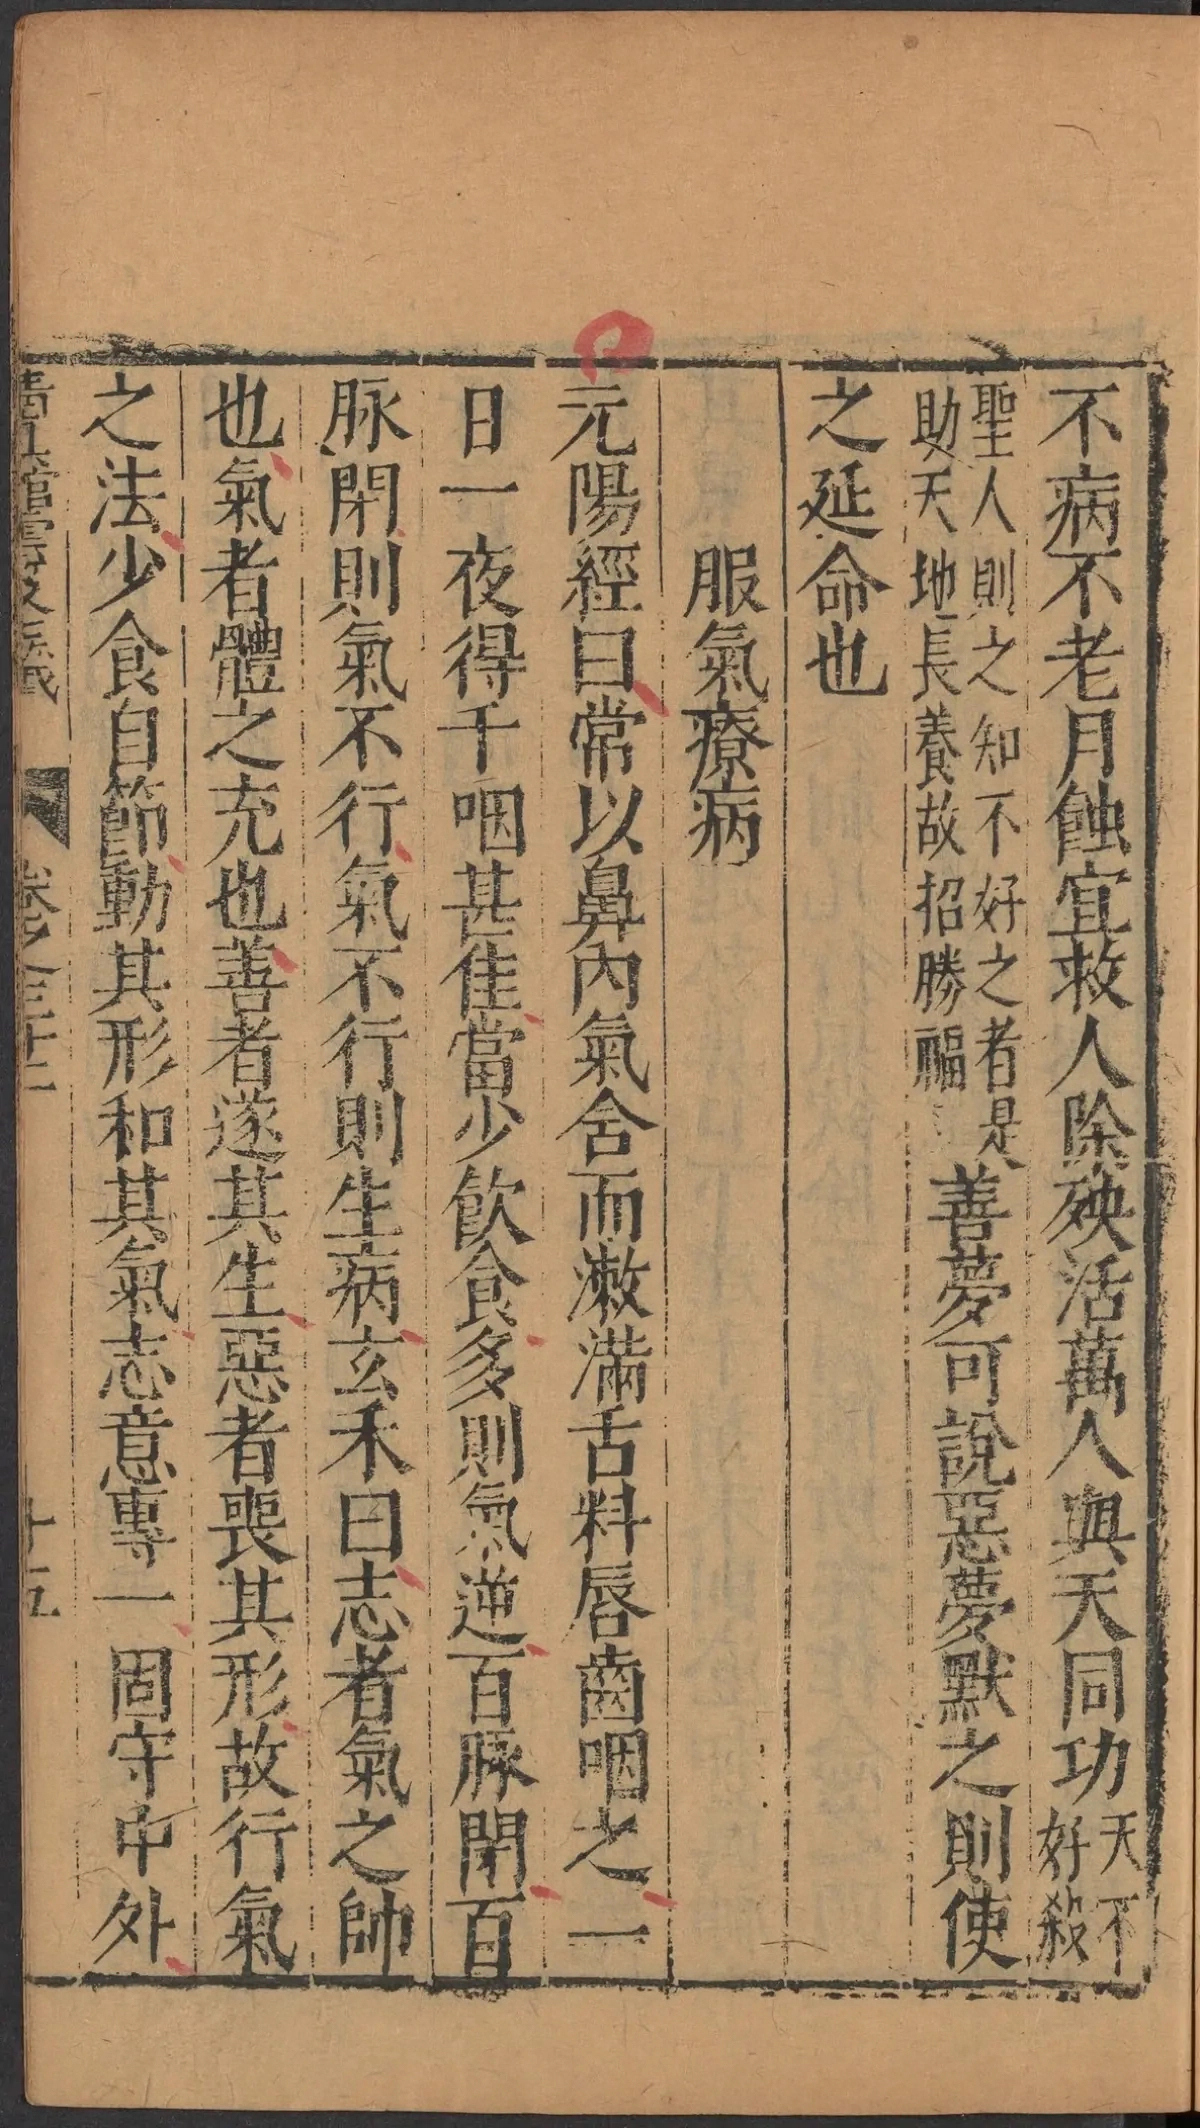 不病不老月蝕宜救人除殃活萬人與天同功天不好殺
聖人則之知不好之者是助天地長養故招勝福善夢可說惡夢默之則使
之延命也
服氣療病
元陽經曰常以鼻內氣含而漱滿舌料唇齒咽之一
日一夜得千咽甚佳當少飲食多則氣逆百脉閉百
脉閉則氣不行氣不行則生病玄禾曰志者氣之帥
也氣者體之充也善者遂其生惡者喪其形故行氣
之法少食自節動其形和其氣志意專一固守中外
卷之三十二
十五